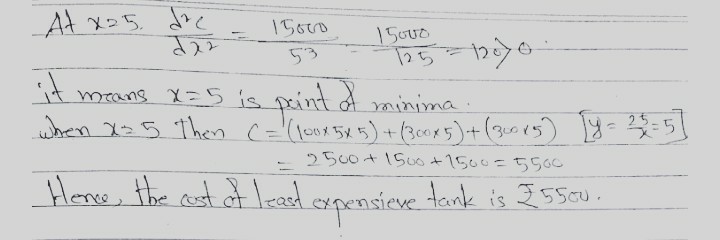 At x=5. d²c/dx² = 15000/5³ = 15000/125 = 120>0.
it means x=5 is point of minima.
when x=5 then C=(100x5x5)+(300x5)+(300x5) [y=25/x=5]
= 2500+1500+1500=5500
Hence, the cost of least expensieve tank is ₹5500.